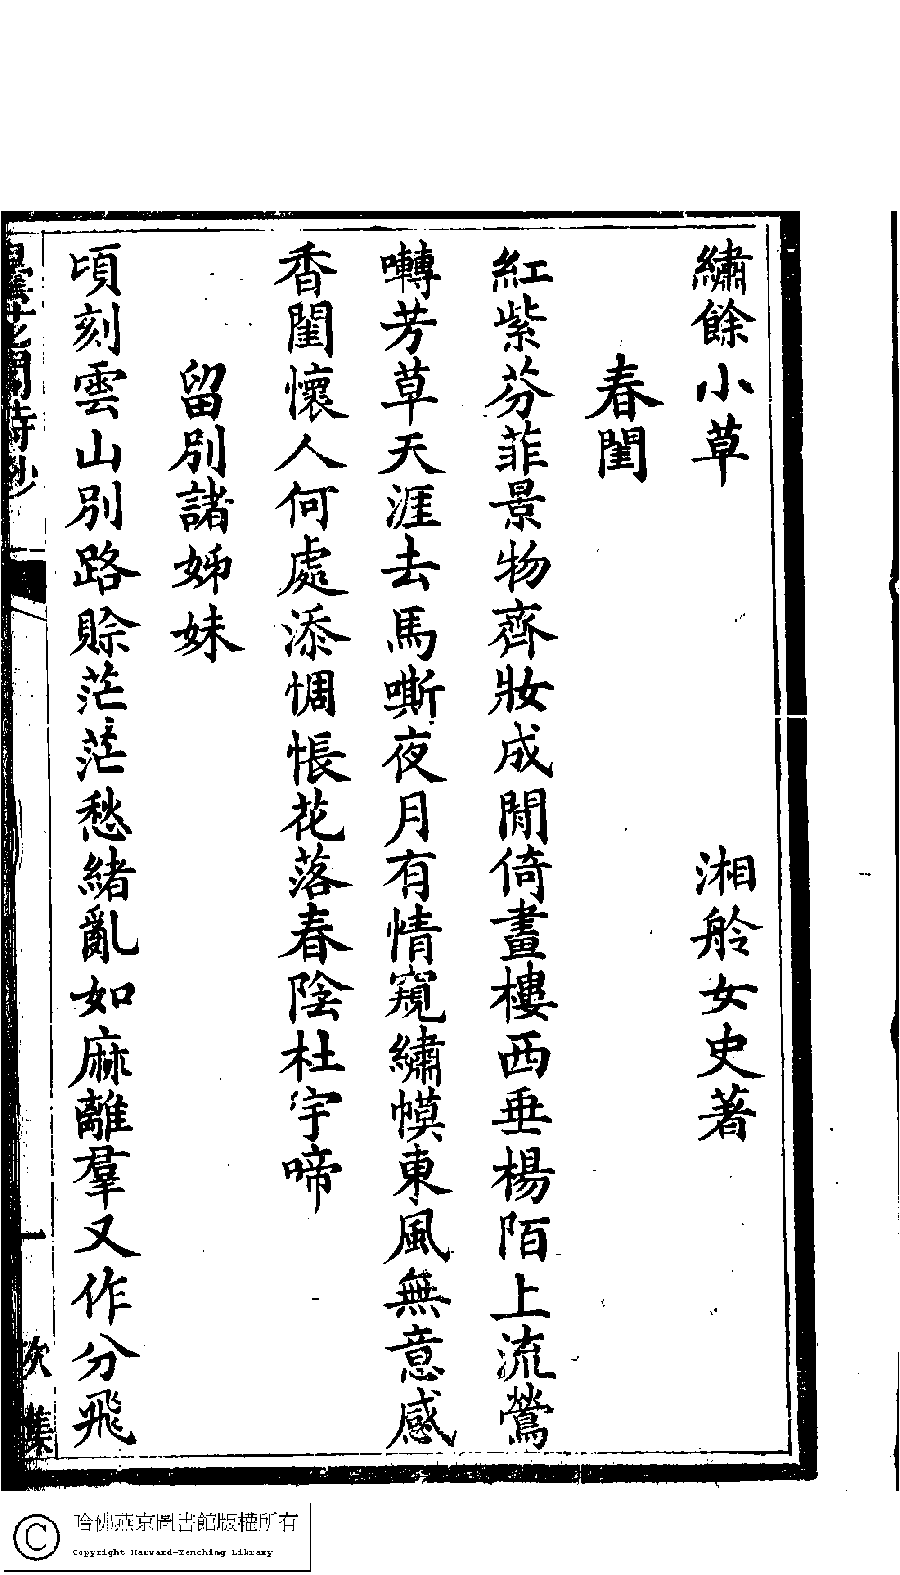 繡餘小草　湘舲女史著
春閨
紅紫芬菲景物齊妝成閒倚畫樓西垂楊陌上流鶯
囀芳草天涯去馬嘶夜月有情窺繡幙東風無意感
香閨懷人何處添惆悵花落春陰杜宇啼
留別諸姊妹
頃刻雲山別路賒茫茫愁緒亂如麻離羣又作分飛
曇花閣詩鈔
一
次集
哈佛燕京圖書館版權所有
Copyright Harvard-Yenching Library